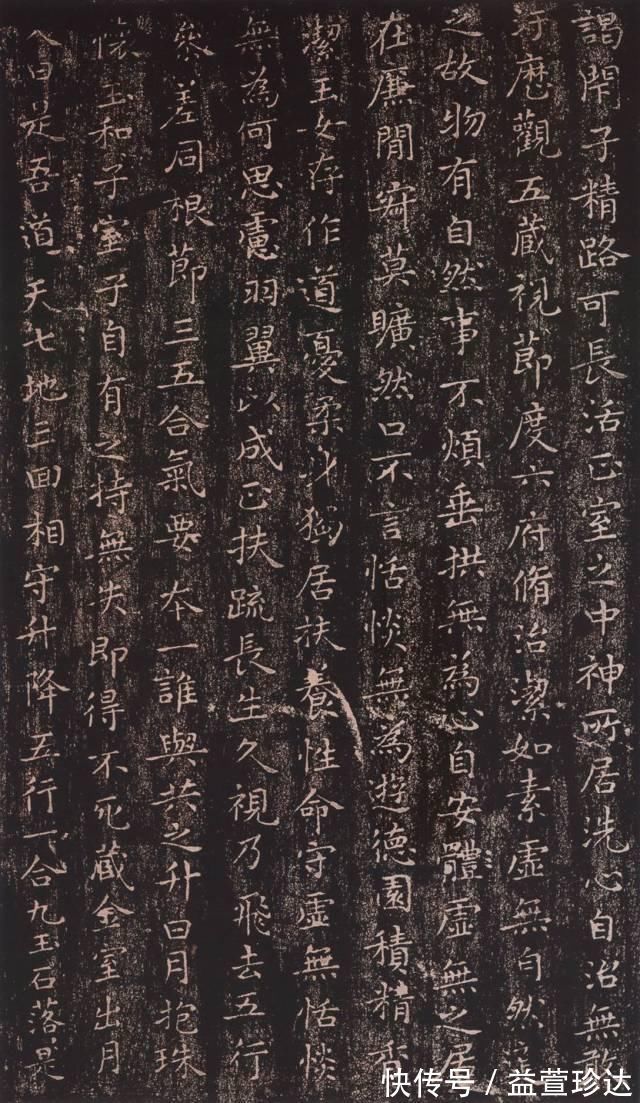 謁閇子精路可長活正室之中神所居洗心自治無敢
汙歷觀五藏視節度六府脩治潔如素虛無自然道
之故物有自然事不煩垂拱無為心自安體虛無之居
在廉閒寂莫曠然口不言恬惔無為遊德園積精香
潔玉女存作道憂柔身獨居扶養性命守虛無恬惔
無為何思慮羽翼以成正扶疏長生久視乃飛去五行
參差同根節三五合氣要本一誰與共之升日月抱珠
懷玉和子室子自有之持無失即得不死藏金室出月
入日是吾道天七地三回相守升降五行一合九玉石落〻是
快传号／益萱珍达